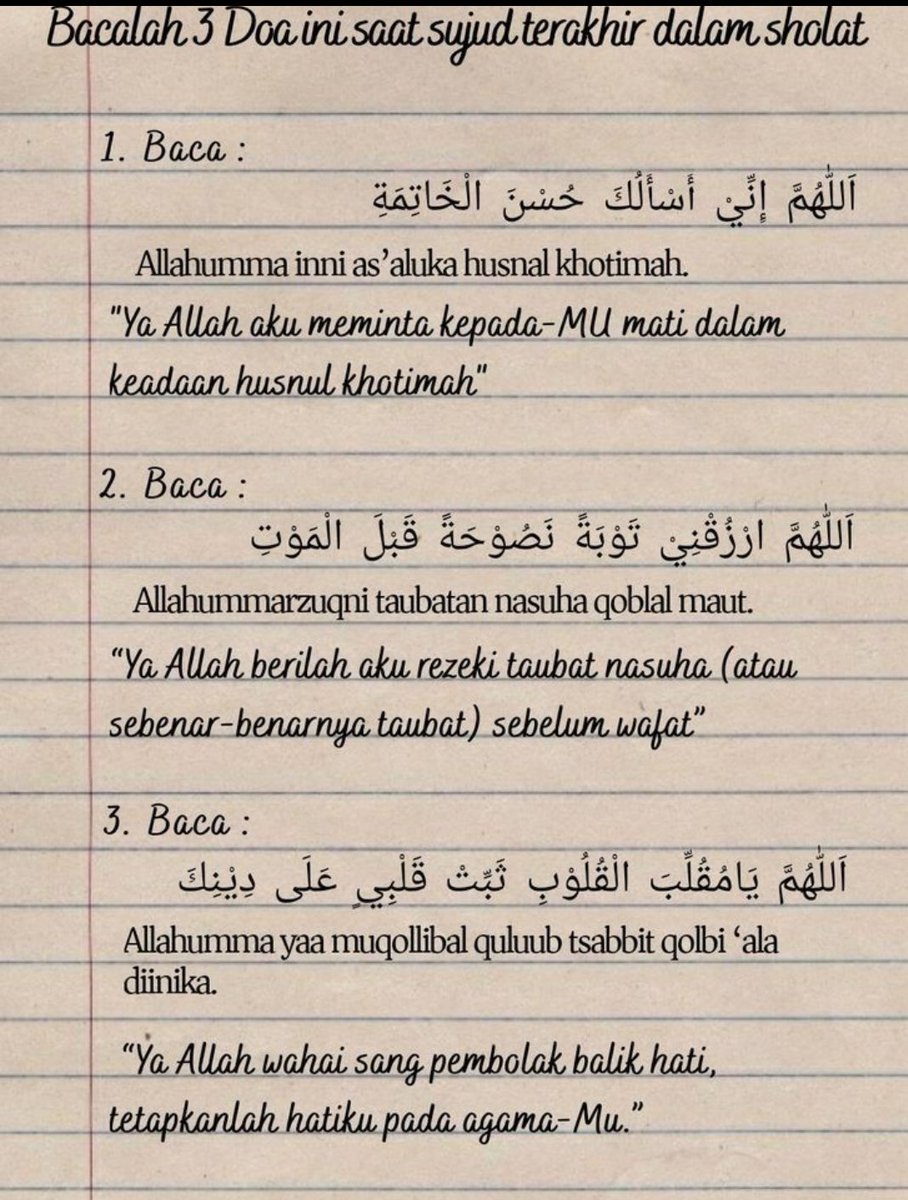 Bacalah 3 Doa ini saat sujud terakhir dalam sholat
1. Baca :
اَللّٰهُمَّ إِنِّيْ أَسْأَلُكَ حُسْنَ الْخَاتِمَةِ
Allahumma inni as’aluka husnal khotimah.
"Ya Allah aku meminta kepada-MU mati dalam
keadaan husnul khotimah"
2. Baca :
اَللّٰهُمَّ ارْزُقْنِيْ تَوْبَةً نَصُوْحَةً قَبْلَ الْمَوْتِ
Allahummarzuqni taubatan nasuha qoblal maut.
“Ya Allah berilah aku rezeki taubat nasuha (atau
sebenar-benarnya taubat) sebelum wafat”
3. Baca :
اَللّٰهُمَّ يَامُقُلِّبَ الْقُلُوْبِ ثَبِّتْ قَلْبِيٍ عَلَى دِيْنِكَ
Allahumma yaa muqollibal quluub tsabbit qolbi ‘ala
diinika.
“Ya Allah wahai sang pembolak balik hati,
tetapkanlah hatiku pada agama-Mu.”